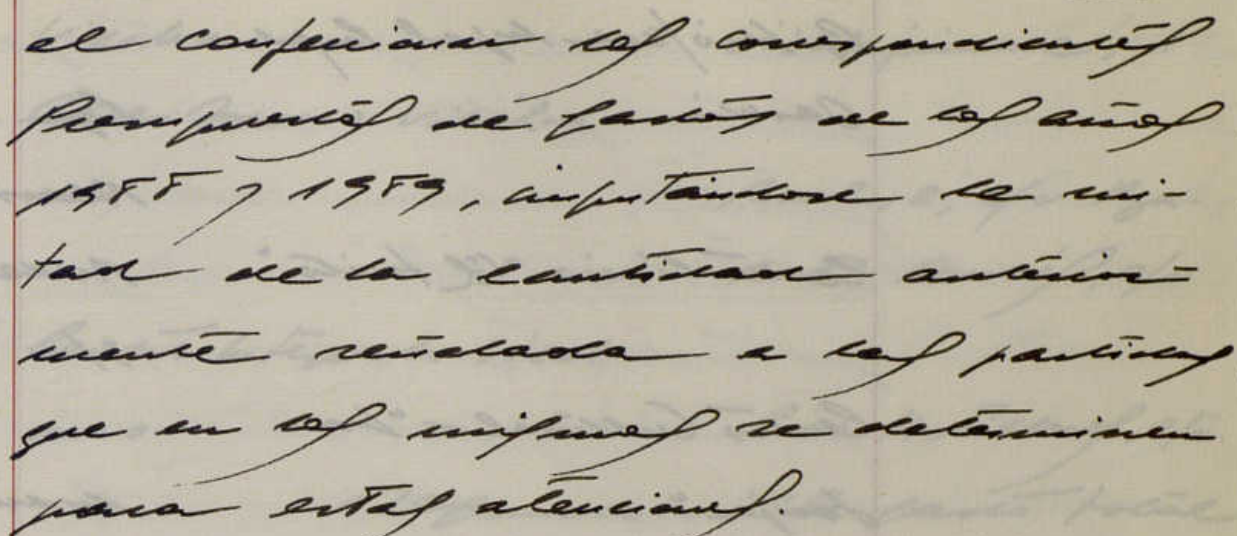 al confeccionar los correspondientes
Presupuestos de Gastos de los años
1988 y 1989, imputándose la mi-
tad de la cantidad anterior-
mente señalada a las partidas
que en los mismos se determinen
para estas atenciones.